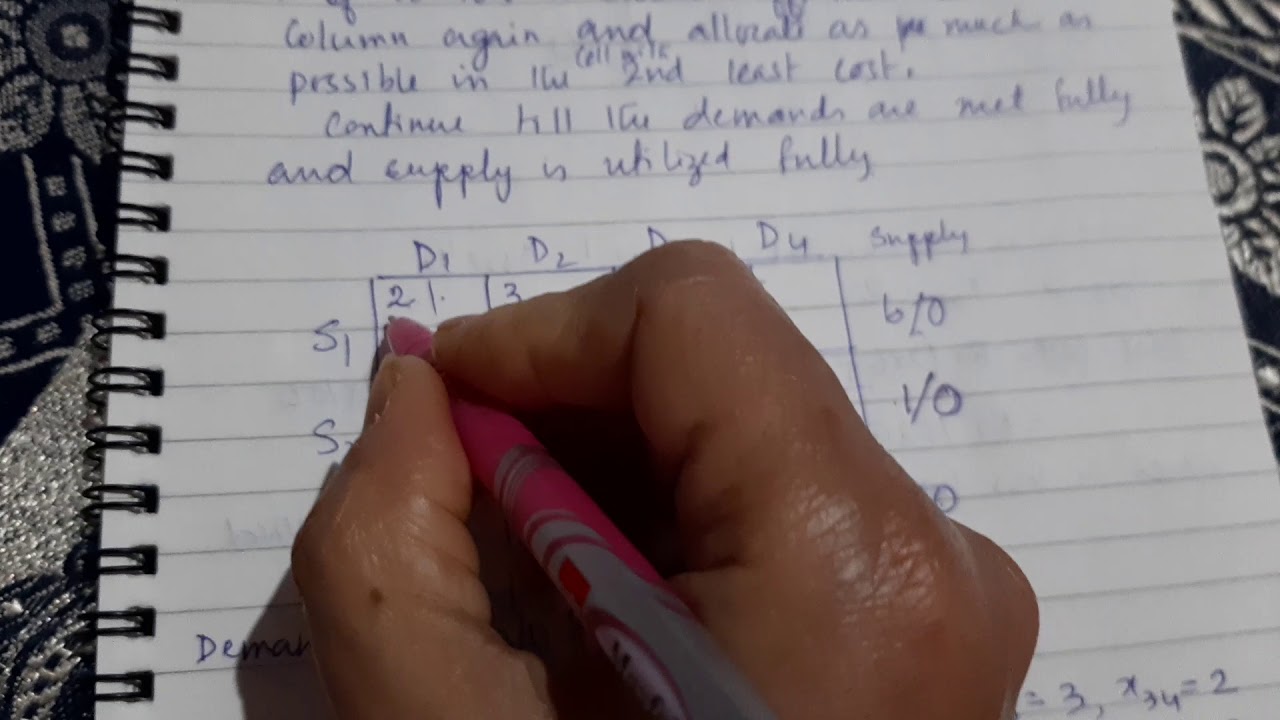 Column again and allocate as much as
cell with
possible in the 2nd least cost.
Continue till the demands are met fully
and supply is utilized fully
D1 D2 D4 Supply
2 1 3
S1 6/0
S 1/0
0
Deman
= 3, x34 = 2